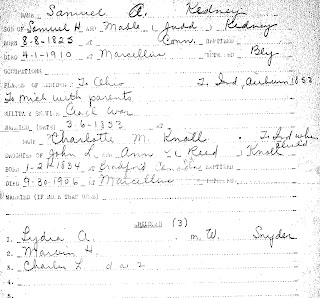 NAME Samuel A. Redney
SON OF Samuel H. AND Mable (Judd) Redney
BORN 8-8-1825 AT Conn. BAPTISED
DIED 4-1-1910 AT Marcellus
OCCUPATIONS
PLACES OF RESIDENCE To Ohio To Ind, Auburn 1853
To Mich with parents
MILITARY SERVICE Civil War
MARRIED (DATE) 3-6-1853 AT
NAME Charlotte M. Knoll To Ind when child
DAUGHTER OF John L. AND Ann (Reed) Knoll
BORN 1-21-1834 AT Bradford BAPTISED
DIED 9-30-1906 AT Marcellus
CHILDREN (3)
1. Lydia A. m. W. Snyder
2. Marvin H.
3. Charles L. d a 2
4.
5.
6.